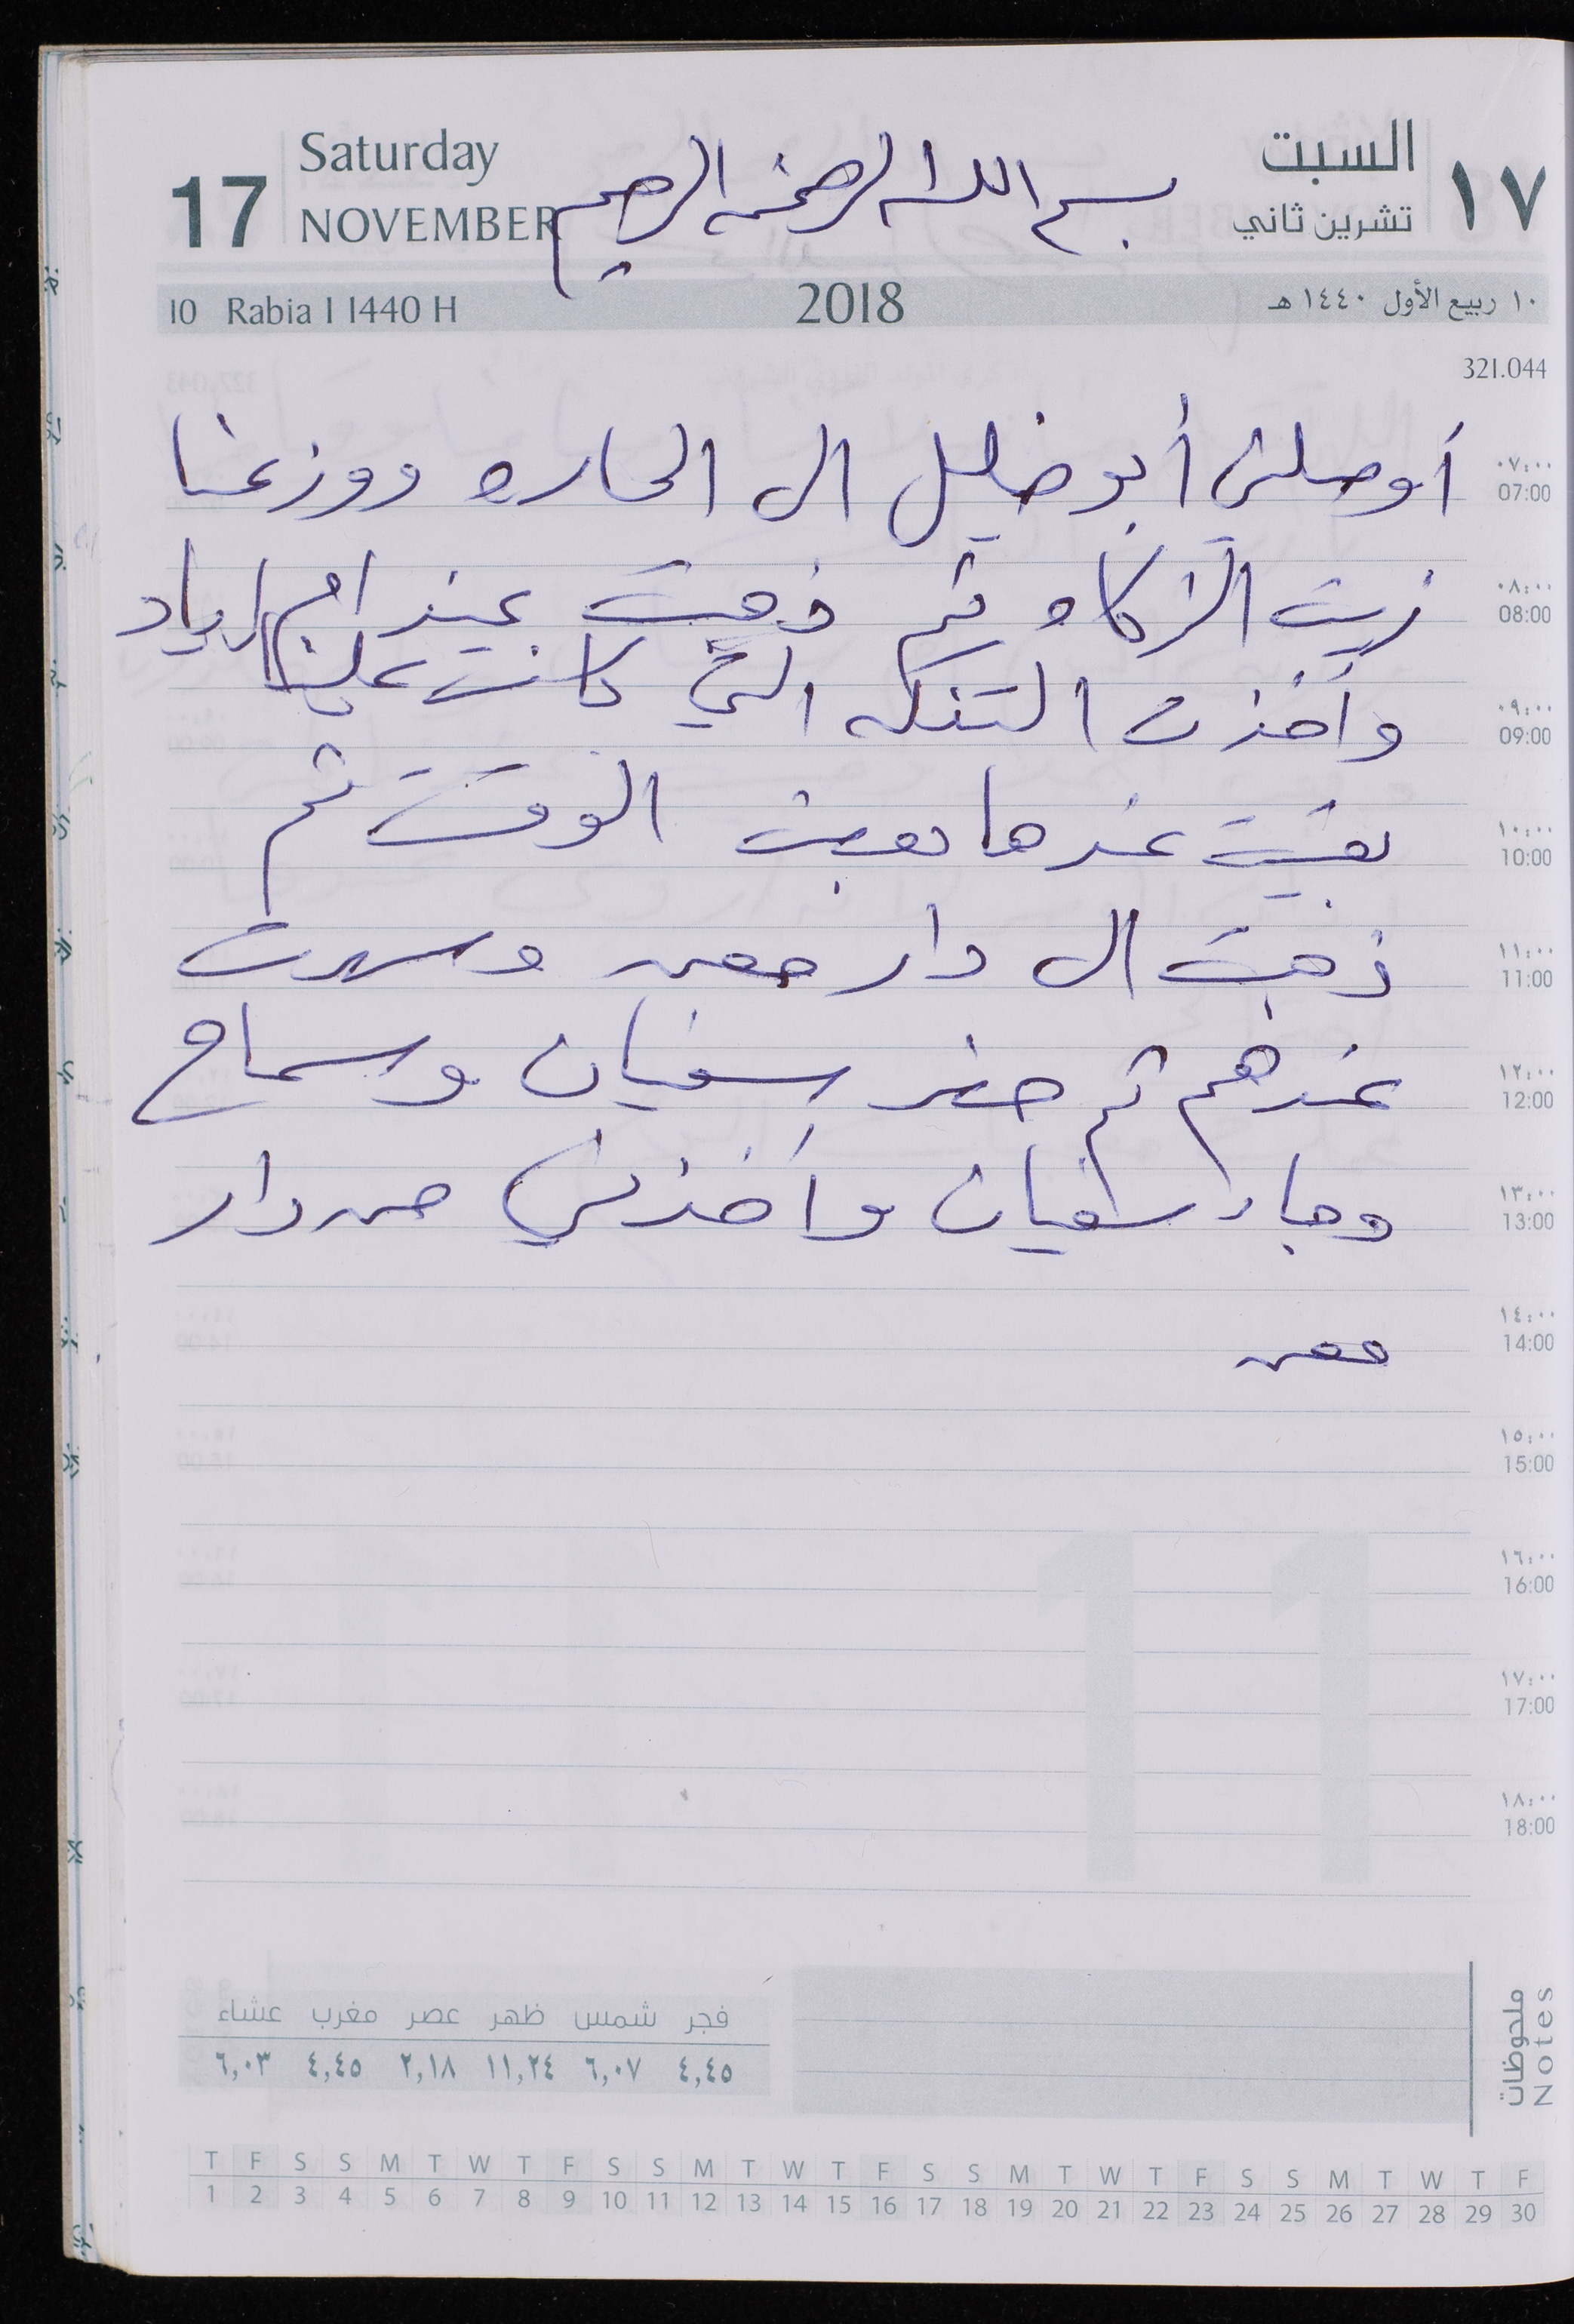 Saturday
17
NOVEMBER
بسم الله الرحمن الرحيم
السبت
١٧
تشرين ثاني
10 Rabia I 1440 H
2018
١٠ ربيع الأول ١٤٤٠ هـ
321.044
أوصلني أبو خليل الى الحاره ووزعنا
٠٧:٠٠
07:00
زيت الزكاه ثم ذهبت عند ام اياد
٠٨:٠٠
08:00
وأخذت التنكه التي كانت
٠٩:٠٠
09:00
بقيت عندها بعض الوقت ثم
١٠:٠٠
10:00
ذهبت الى دار معن وسهرت
١١:٠٠
11:00
عندهم ثم حضر سفيان وسماح
١٢:٠٠
12:00
وجاء سفيان وأخذني من دار
١٣:٠٠
13:00
معن
١٤:٠٠
14:00
١٥:٠٠
15:00
١٦:٠٠
16:00
11
١٧:٠٠
17:00
١٨:٠٠
18:00
ملحوظات
Notes
فجر شمس ظهر عصر مغرب عشاء
٤,٤٥ ٦,٠٧ ١١,٢٤ ٢,١٨ ٤,٤٥ ٦,٠٣
T F S S M T W T F S S M T W T F S S M T W T F S S M T W T F
1 2 3 4 5 6 7 8 9 10 11 12 13 14 15 16 17 18 19 20 21 22 23 24 25 26 27 28 29 30